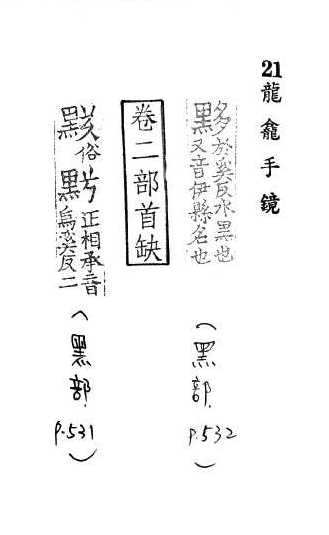 21龍龕手鏡
黟於奚反水黑也
又音伊縣名也
(黑部.
P.532)
卷二部首缺
俗
正相承音
烏亥反二
(黑部.
P.531)